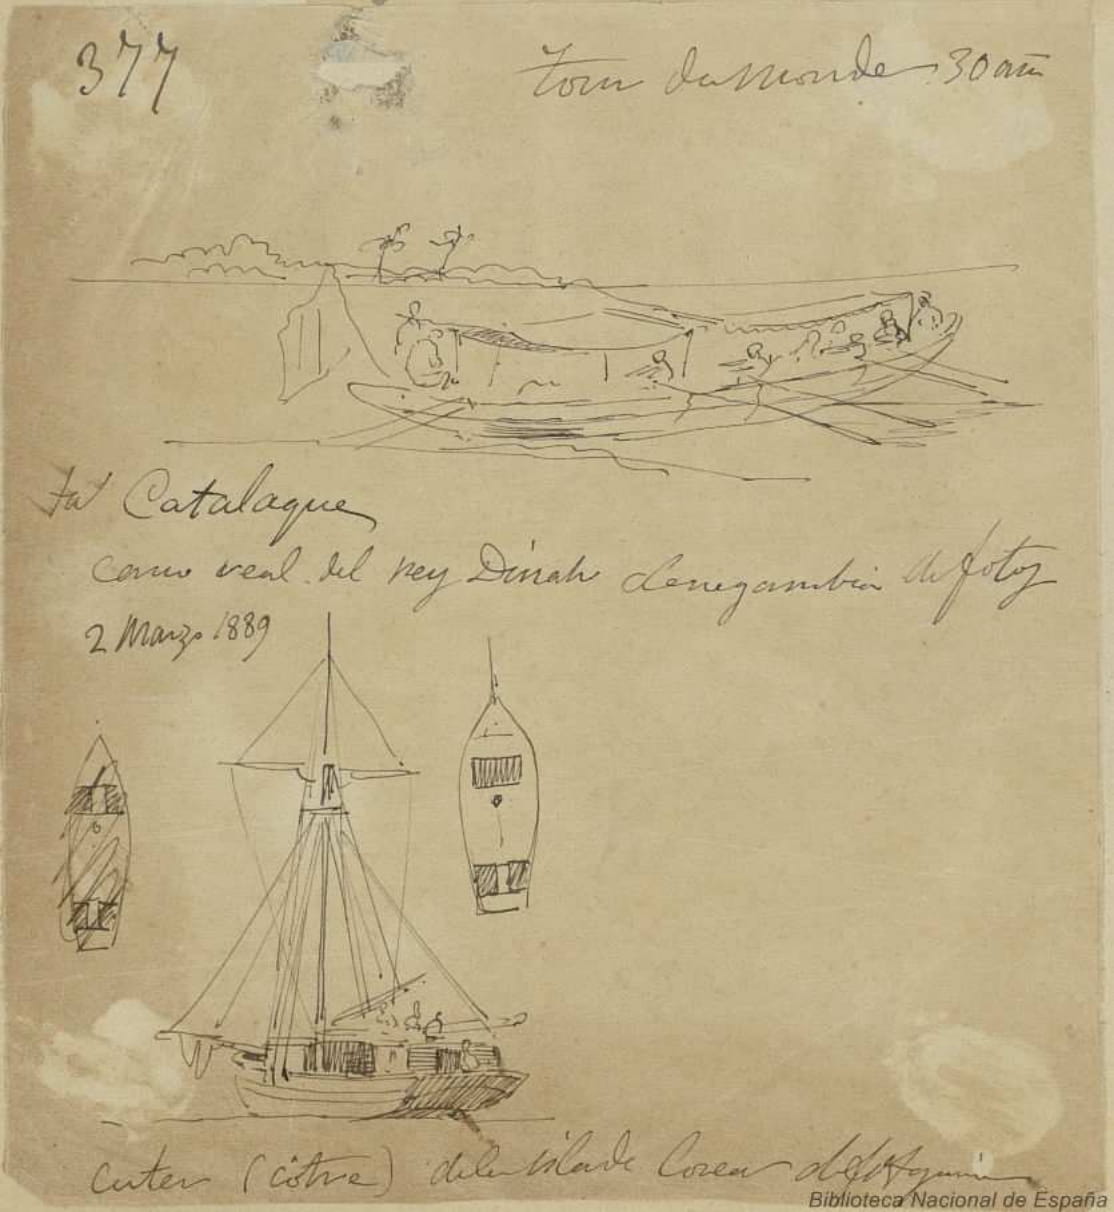 377
tour du monde 30 añ
Catalaque
canoa real del rey Dinah Senegambia de fotog
2 Marzo 1889
cuter (côtre) de la isla de Corea
Biblioteca Nacional de España